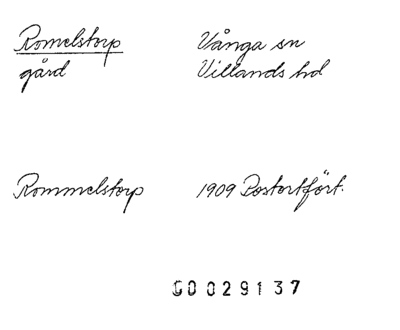 Romelstorp
gård
Vånga sn
Villands hd
Rommelstorp
1909 Postortfört.
00029137